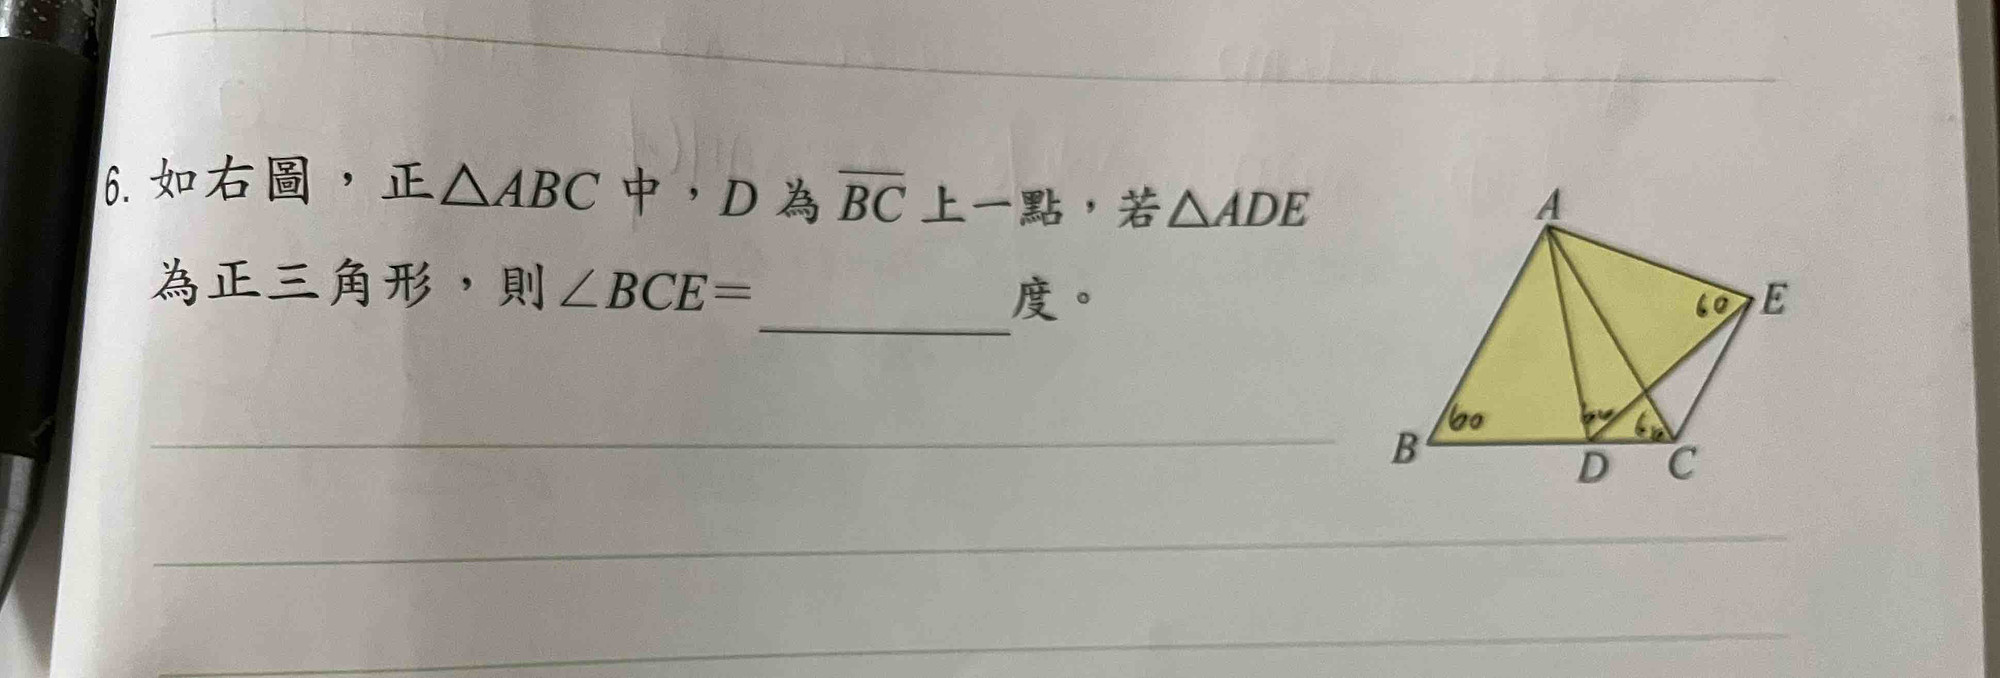 6. 如右圖，正△ABC 中，D 為 BC 上一點，若△ADE
為正三角形，則∠BCE=＿＿＿＿度。
A
E
60
60
60
B
D
C